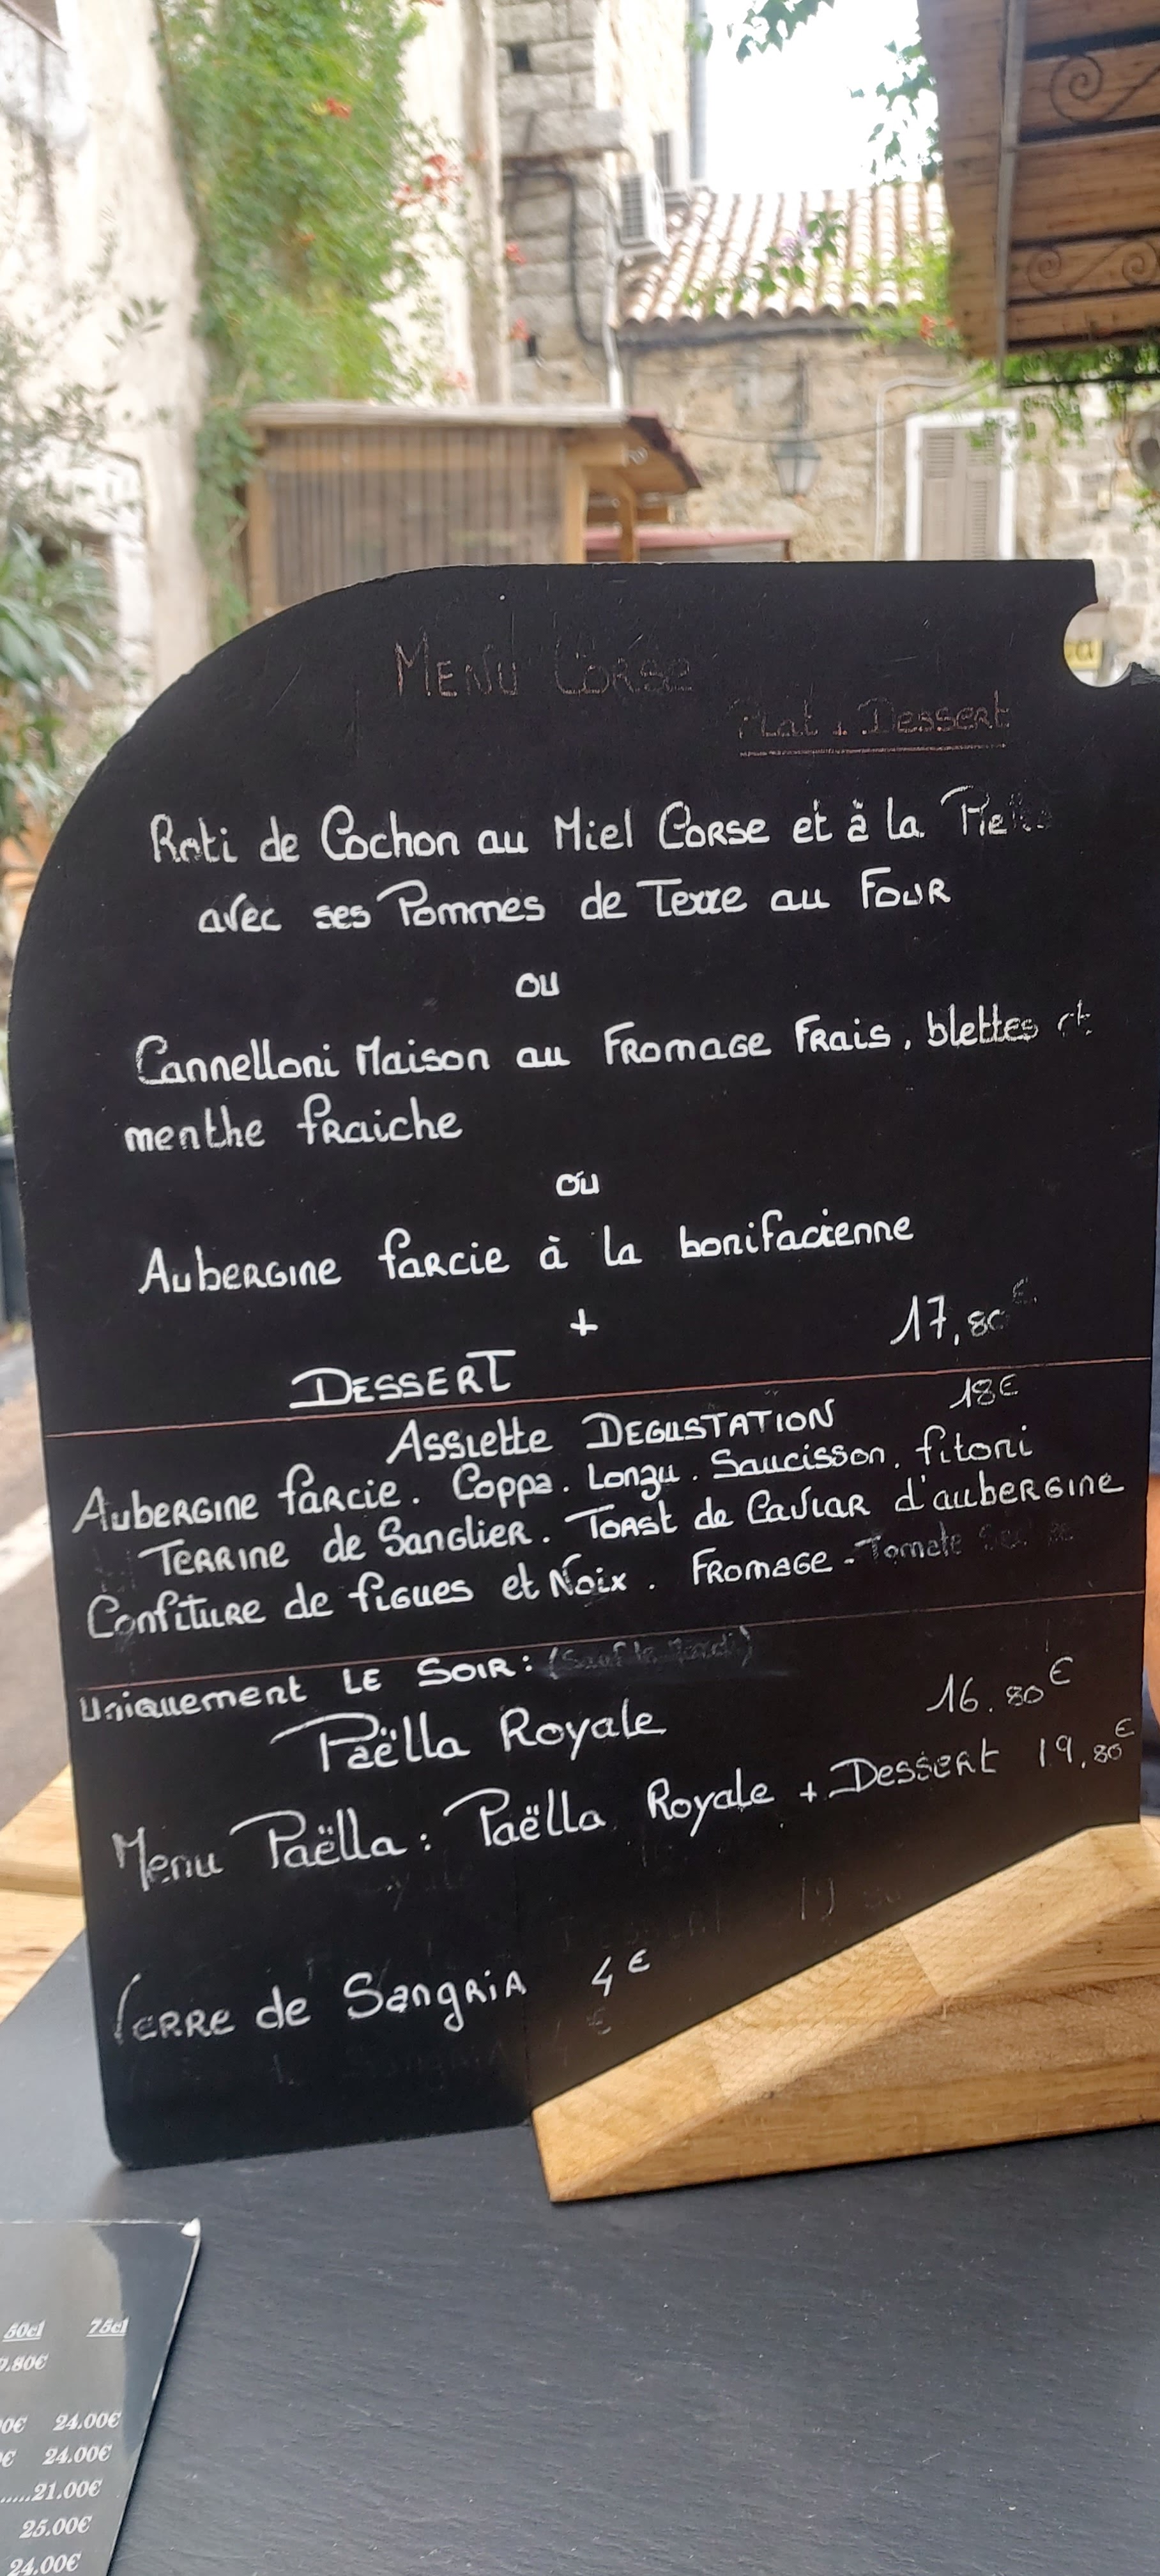 MENU CORSE
Plat + Dessert
Roti de Cochon au Miel CORSE et à la
avec ses Pommes de Terre au FOUR
OU
Cannelloni Maison au FROMAGE FRAIS, blettes et
menthe fRAiche
OU
AubERGINE faRCiE à la bonifacienne
+ 17,80€
DESSERT
ASSiette DEGUSTATION 18€
AubERGINE faRCiE. Coppa. Lonzu. Saucisson. fitoni
TERRINE de SANGLiER. TOAST de CaViAR d'aubERGINE
ConfiTURE de fiGUES et Noix. FROMAGE - Tomate
Uniquement LE SOIR: (Sauf le Mardi)
Paëlla ROyALE 16.80€
Menu Paëlla: Paëlla Royale + DessERt 19,80€
VERRE de SangRiA 4€
50cl 75cl
.80€
0€ 24.00€
€ 24.00€
.....21.00€
25.00€
24.00€